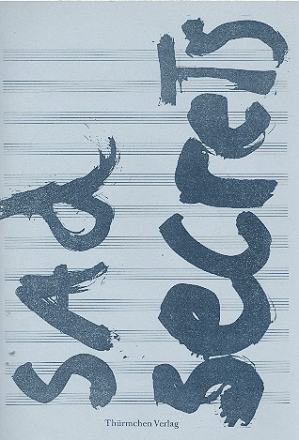 sAd
secreTs
Thürmchen Verlag